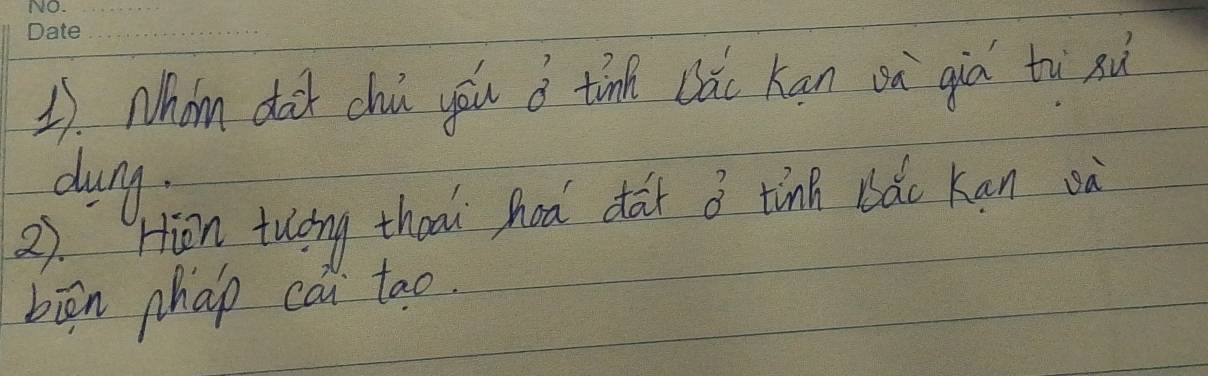 No.
Date
1). Nhóm đất chủ yếu ở tỉnh Bắc Kạn và giá trị sử
dụng.
2). Hiện tượng thoái hoá đất ở tỉnh Bắc Kạn và
biện pháp cải tạo.